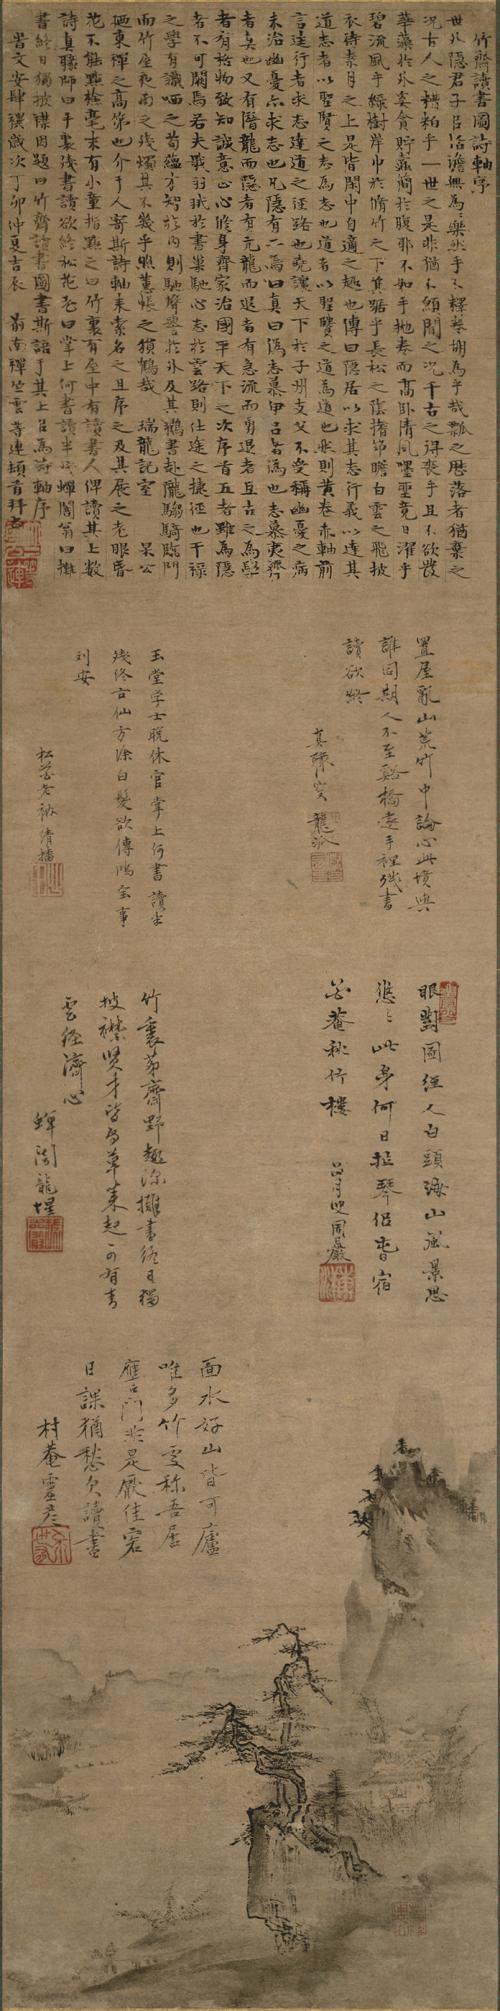 竹齋讀書圖詩軸序
世外隱君子居治澹無為之樂然手不釋卷胡為乎哉瓢之歷落者猶棄之
況古人之糟粕乎一世之是非猶不傾聞之況千古之得喪乎且不欲發
華藻於外奚貪貯蠹簡於腹邪不如乎拋卷而高臥清風嘿坐竟日濯乎
碧流風乎綠樹岸巾於脩竹之下箕踞乎長松之陰搘笻瞻白雲之飛披
衣待素月之上是皆閑中自適之趣也傳曰隱居以求其志行義以達其
道志者以聖賢之志為志也道者以聖賢之道為道也然則黃卷赤軸前
言往行者求志達道之徑路也堯讓天下於子州支父不受稱幽憂之病
未治幽憂亦求志也凡隱有二焉曰真曰偽志慕甲呂者偽也志慕夷齊
者真也又有潛龍而隱者有亢龍而退者有急流而勇退者且古之為學
者有格物致知誠意正心脩身齊家治國平天下之次序首五者雖為隱
者不可闕焉若夫戢羽翮於書巢馳心志於雲路則仕途之捷徑也干祿
之學有識哂之苟蘊方智於內則馳聲譽於外及其鶴書赴隴騶騎臨門
而竹屋夜雨之殘燭其不幾乎照蕙帳之猿鶴哉 瑞龍記室 杲公
迺東禪之高弟也介于人寄斯詩軸來索名之且序之及其展之老眼昏
花不能點檢毫末有小童指點之曰竹裏有屋屋中有讀書人俾讀其上數
詩真驛師曰手裏殘書讀欲終松花老曰掌上何書讀半殘蟬闇翁曰擁
書終日獨披襟因題曰竹齋讀書圖書斯語于其上㠯為詩軸序
旹文安肆禩歲次丁卯仲夏吉辰 前南禪竺雲等連頓首拜書
置屋亂山荒竹中論心此境與
誰同期人不至谿橋遠手裡殘書
讀欲終
真驛叟龍派
玉堂學士晚休官掌上何書讀半
殘終古仙方除白髮欲傳鴻宝事
刘安
松花老衲清播
眼對圖經人白頭海山風景思
悠々此身何日琴侶宿
花菴秋竹樓
月叟周嚴
竹裏茅齋野趣深擁書終日獨
披襟賢才皆為草萊起可有青
雲經濟心
蟬闇龍惺
面水好山皆可廬
唯多竹處称吾居
應門非是厭佳客
日課猶愁欠讀書
村菴靈彦